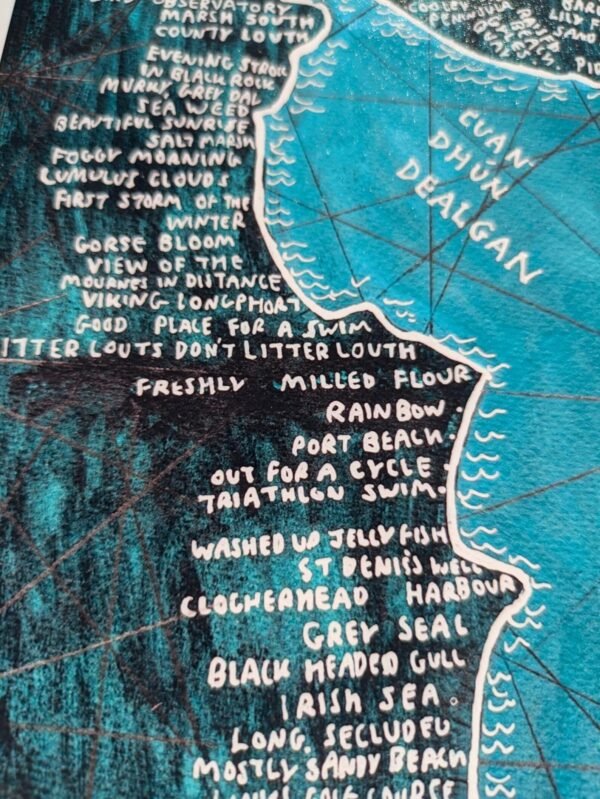 OBSERVATORY
MARSH SOUTH
COUNTY LOUTH
EVENING STROLL
IN BLACK ROCK
MURKY GREY DAY
SEA WEED
BEAUTIFUL SUNRISE
SALT MARSH
FOGGY MORNING
CUMULUS CLOUDS
FIRST STORM OF THE
WINTER
GORSE BLOOM
VIEW OF THE
MOURNES IN DISTANCE
VIKING LONGPHORT
GOOD PLACE FOR A SWIM
ITTER LOUTS DON'T LITTER LOUTH
FRESHLY MILLED FLOUR
RAINBOW
PORT BEACH
OUT FOR A CYCLE
TRIATHLON SWIM
WASHED UP JELLY FISH
ST DENIS'S WELL
CLOGHERHEAD HARBOUR
GREY SEAL
BLACK HEADED GULL
IRISH SEA
LONG, SECLUDED
MOSTLY SANDY BEACH
GOLF COURSE
COOLEY
PENINSULA
LILY
SAND
CUAN
DHÚN
DEALGAN